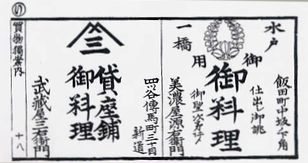 飯田町中坂下角
仕出シ御誂
御料理
水戸
一橋
御用
美濃屋源右衛門
四ツ谷傳馬町三丁目
新道
貸座舗
御料理
三
武蔵屋三右衛門
買物獨案内
十八